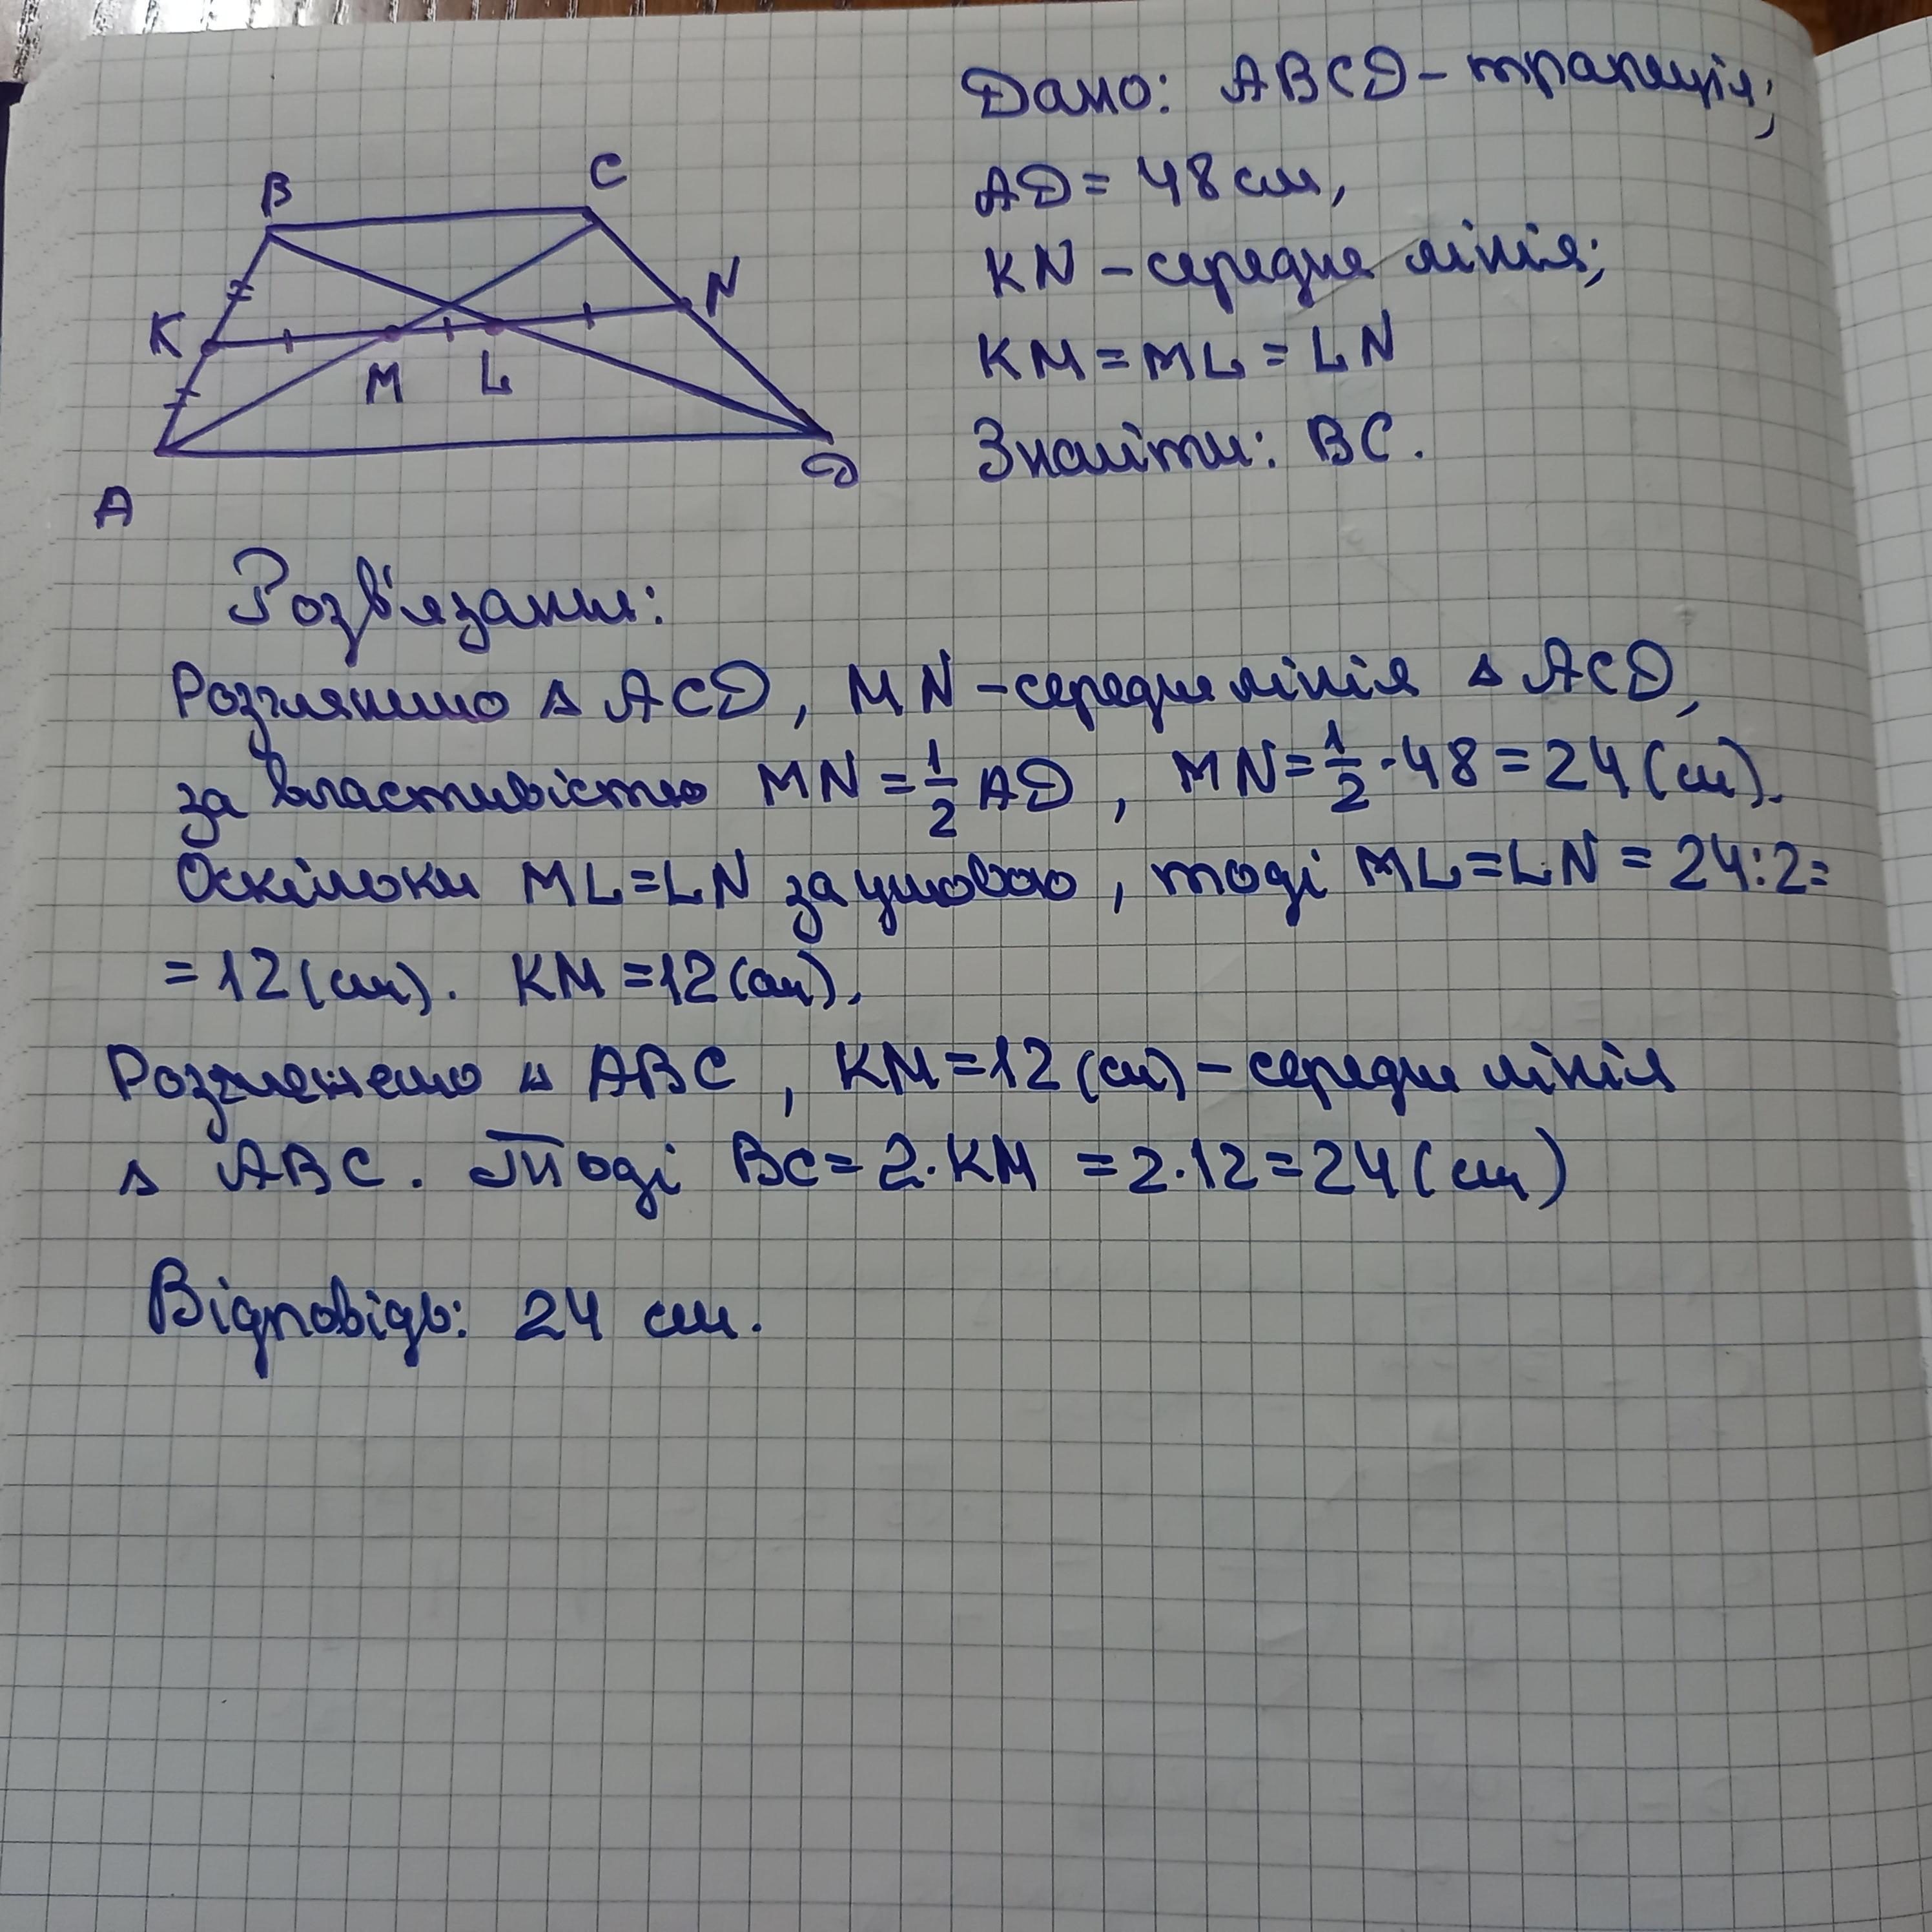 Дано: ABCD - трапеція;
AD = 48 см,
KN - середня лінія;
KM = ML = LN
Знайти: BC.
B
C
K
N
M
L
A
D
Розв'язання:
Розглянемо △ ACD, MN - середня лінія △ ACD,
за властивістю MN = 1/2 AD, MN = 1/2 · 48 = 24 (см).
Оскільки ML = LN за умовою, тоді ML = LN = 24 : 2 =
= 12 (см). KM = 12 (см).
Розглянемо △ ABC, KM = 12 (см) - середня лінія
△ ABC. Тоді BC = 2 · KM = 2 · 12 = 24 (см)
Відповідь: 24 см.